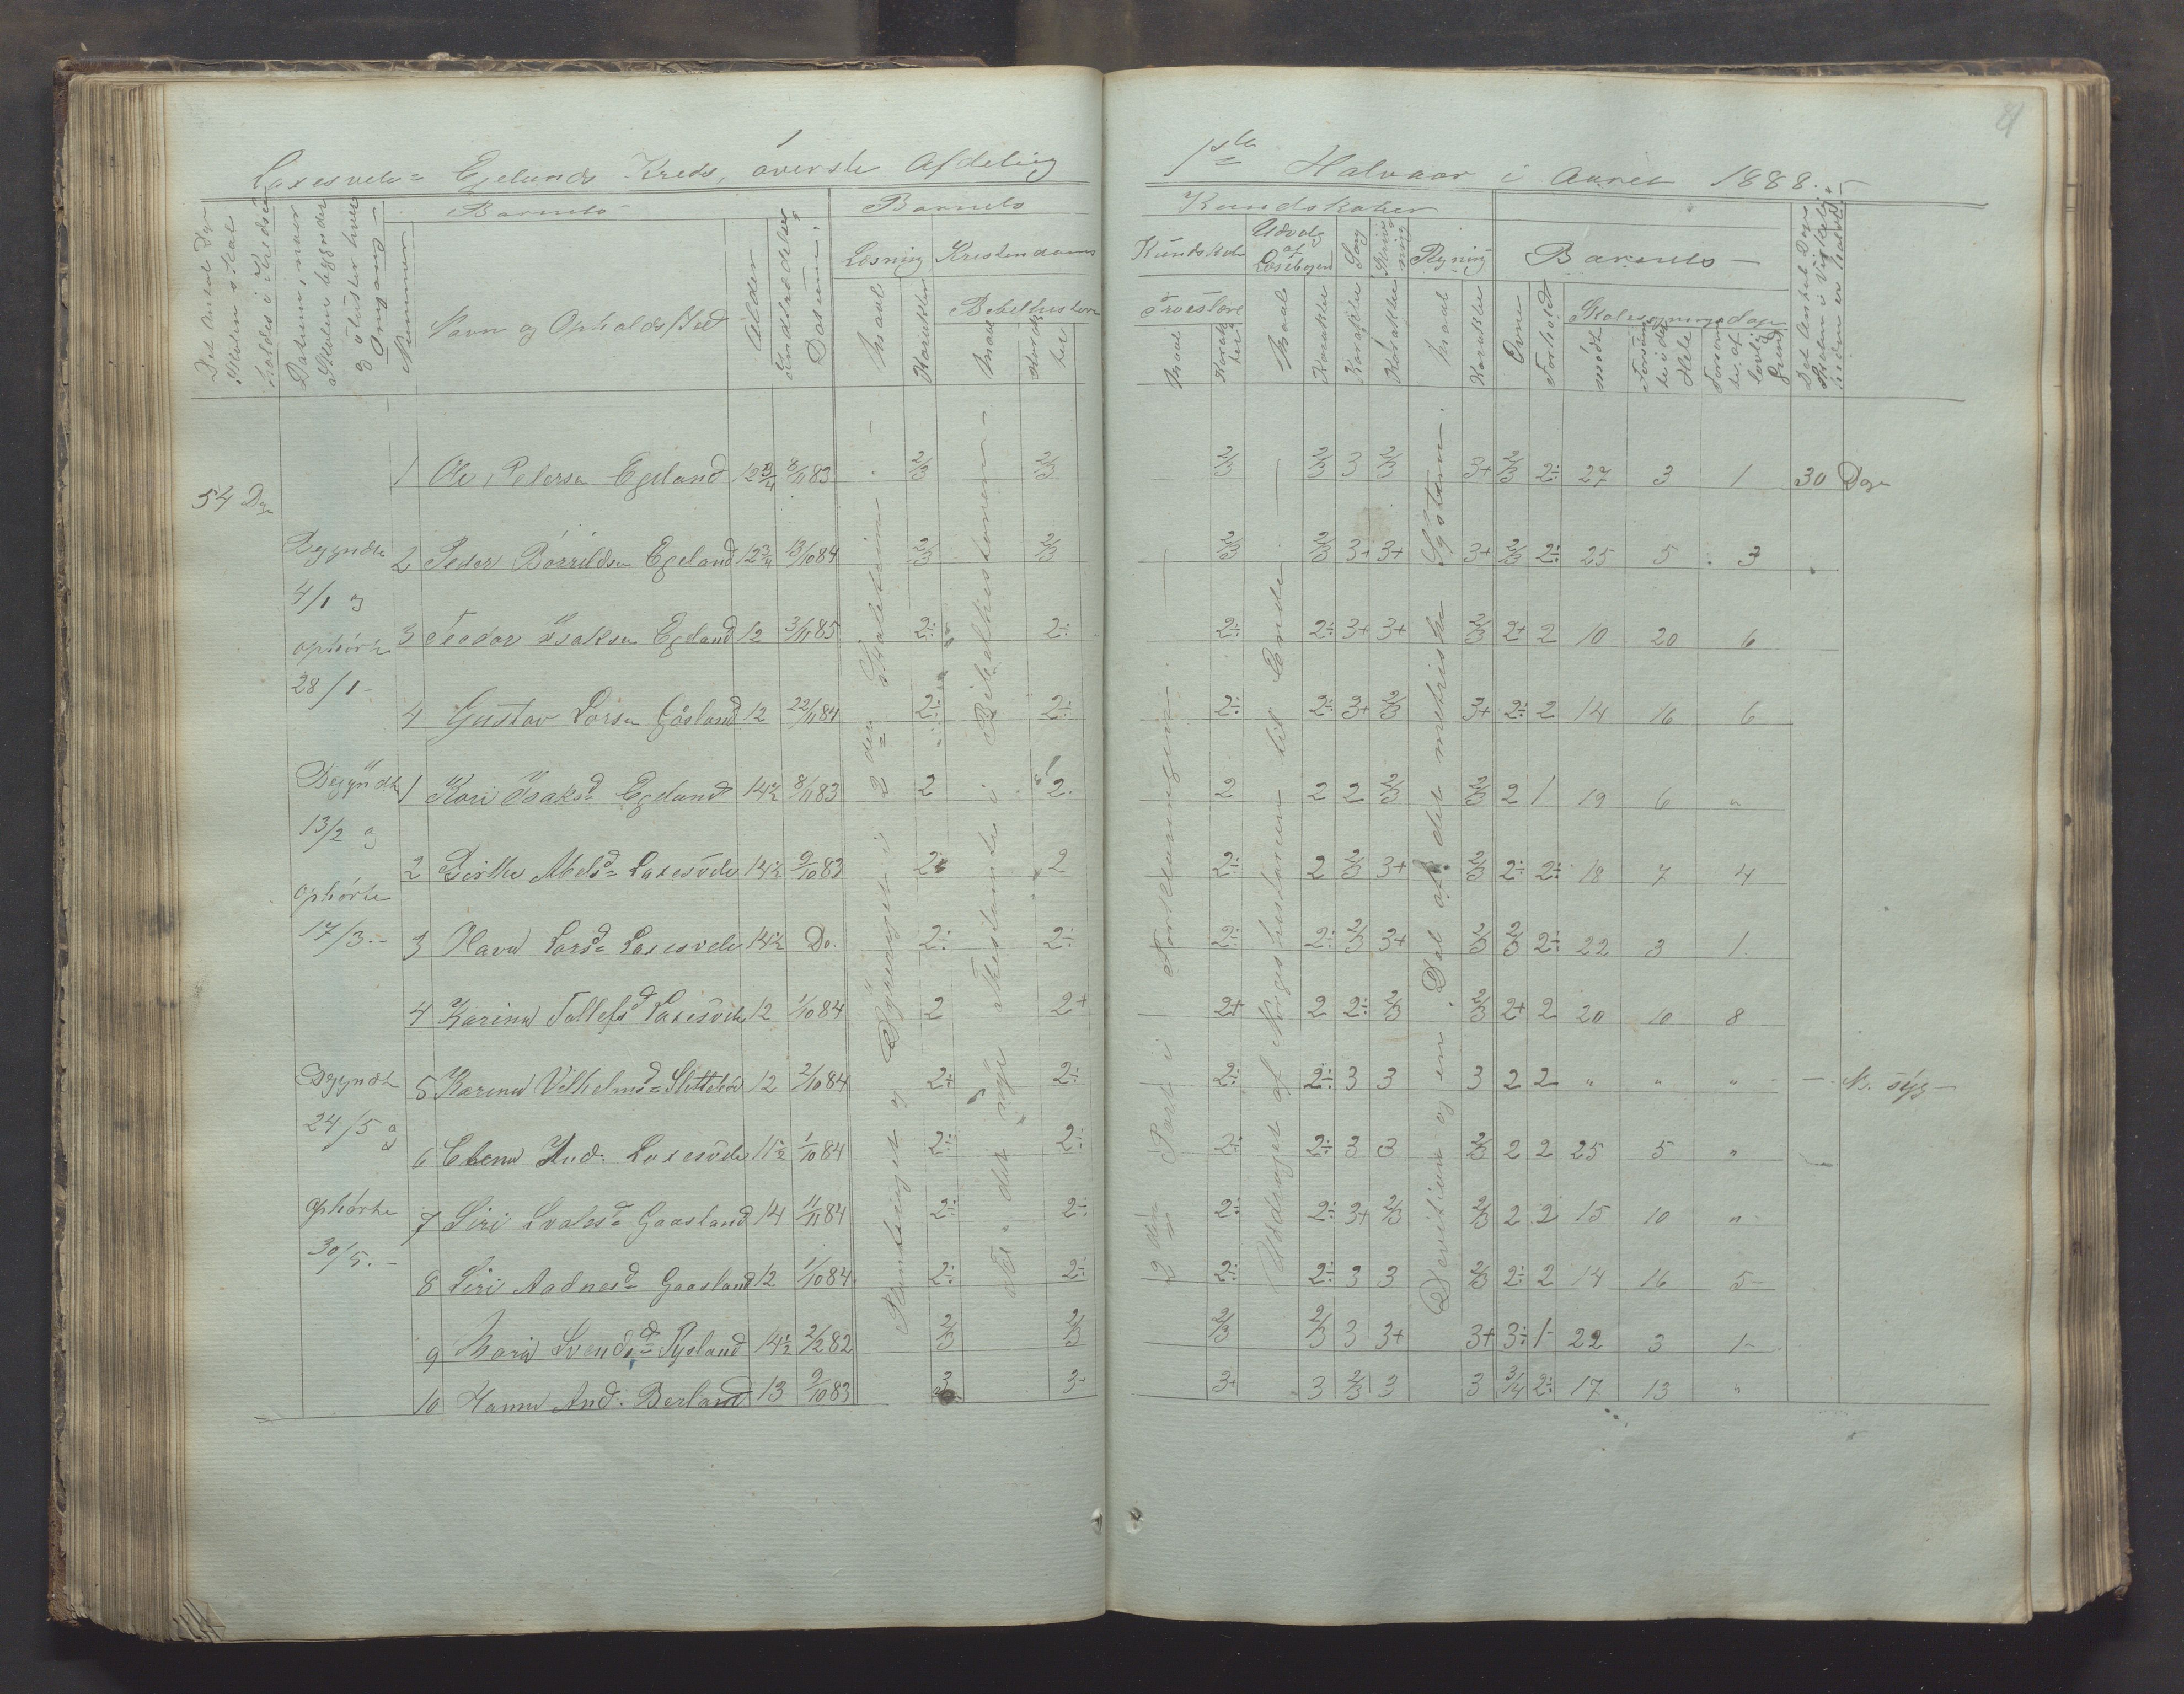 81
Laxesvele- Egelands Kreds, øverste Afdeling
1ste Halvaar i Aaret 1888.
Det Antal Dage Skolen skal holdes i Kredsen
Datum, naar Skolen begynder og slutter hver Omgang
Nummer
Barnets
Navn og Opholdssted
Alder
Indtrædelses Datum.
Barnets
Læsning Kristendoms
Bibelhistorie
Maal Karakter Maal Karakter
Kundskaber
Kundskab Udvalg af Læsebogen Sang Skrivning Regning
Troeslære
Maal Karakter Maal Karakter Karakter Karakter Maal Karakter
Barnets
Evne Forhold
Skolesøgningsdage
mødt Forsømte i det Hele Forsømte af lovlig Grund
54 Dage
Begyndte 4/1 og ophørte 28/1-
Begyndte 13/2 og ophørte 17/3.-
Begyndte 24/5 og ophørte 30/5.-
1 Ole Peterson Egeland 12 3/4 8/11 83 2/3 2/3 2/3 2/3 3 2/3 3+ 2/3 2÷ 27 3 1 30 Dage
2 Peder Egeland 12 3/4 13/10 84 2/3 2/3 2/3 2/3 3+ 3+ 3+ 2/3 2÷ 25 5 3
3 Teodor Isaksen Egeland 12 3/11 85 2÷ 2÷ 2÷ 2÷ 3+ 3+ 2/3 2+ 2 10 20 6
4 Gustav Larsen Gåsland 12 22/11 84 2÷ 2÷ 2÷ 2÷ 3+ 2/3 3+ 2÷ 2 14 16 6
1 Kari Isaksd Egeland 14 1/2 8/11 83 2 2 2 2 2 2/3 2/3 2 1 19 6 "
2 Birthe Abelsd Laxesvele 14 1/2 9/10 83 2 2 2÷ 2 2/3 3+ 2/3 2÷ 2÷ 18 7 4
3 Olava Larsd Laxesvele 14 1/2 Do. 2÷ 2÷ 2÷ 2÷ 2/3 3+ 2/3 2/3 2÷ 22 3 1
4 Karina Tollefsd Laxesvele 12 1/10 84 2 2+ 2+ 2 2÷ 2/3 2/3 2+ 2 20 10 8
5 Karina Vilhelmsd 12 2/10 84 2÷ 2÷ 2÷ 2÷ 3 3 3 2 2 " " " syg
6 Elena And. Laxesvele 11 1/2 1/10 84 2÷ 2÷ 2÷ 2÷ 3 3 2/3 2 2 25 5 "
7 Siri Gaasland 14 11/11 84 2÷ 2÷ 2÷ 2÷ 3+ 2/3 2/3 2 2 15 10 "
8 Siri Aadnesd Gaasland 12 1/10 84 2÷ 2÷ 2÷ 2÷ 3 3 2/3 2÷ 2 14 16 5
9 Maria Svendsd 14 1/2 2/2 82 2/3 2/3 2/3 2/3 3 3+ 3+ 3÷ 1- 22 3 1-
10 Hanna And. Berland 13 9/10 83 3 3- 3+ 3 2/3 3 3 3/4 2÷ 17 13 "
2den Part i Forklaringen.
Uddraget af Norgeshistorien til Ende.
Division og en Del af det metriske System.